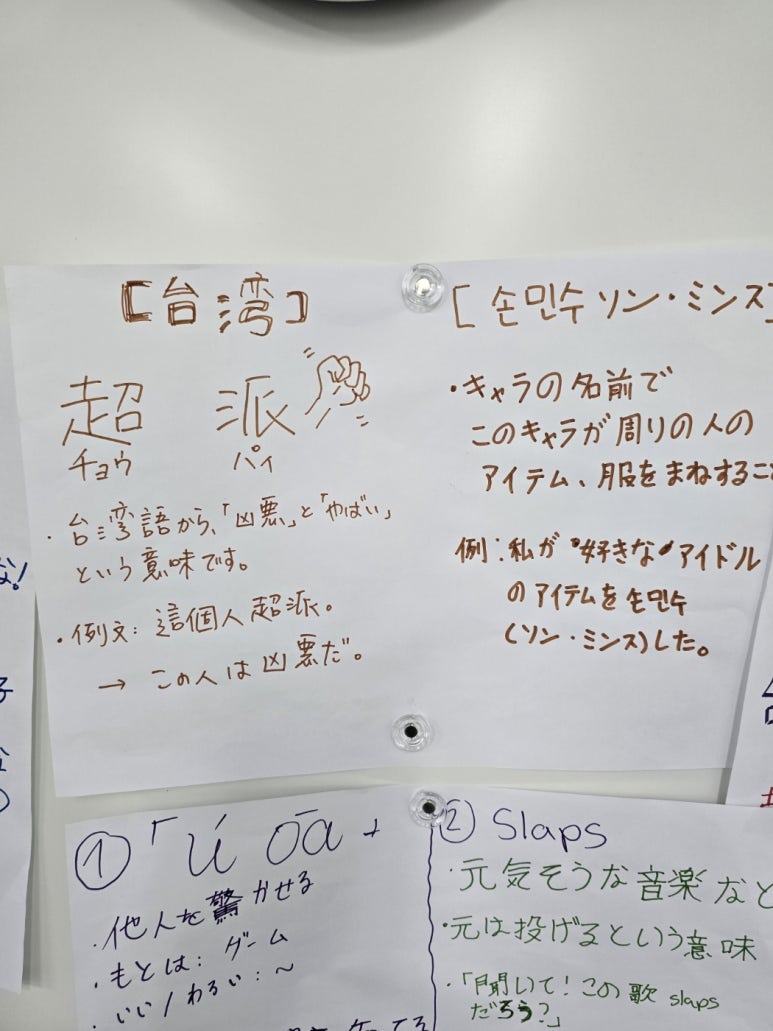 【台湾】
超 派
チョウ パイ
・台湾語から、「凶悪」と「やばい」
という意味です。
・例文：這個人超派。
→ この人は凶悪だ。
[손민수 ソン・ミンス]
・キャラの名前で
このキャラが周りの人の
アイテム、服をまねするこ
例：私が好きなアイドル
のアイテムを손민수
(ソン・ミンス)した。
①「ú ōā」
・他人を驚かせる
・もとは：ゲーム
・いい/わるい：～
② Slaps
・元気そうな音楽など
・元は投げるという意味
・「聞いて！この歌 slaps
だろう？」
な！